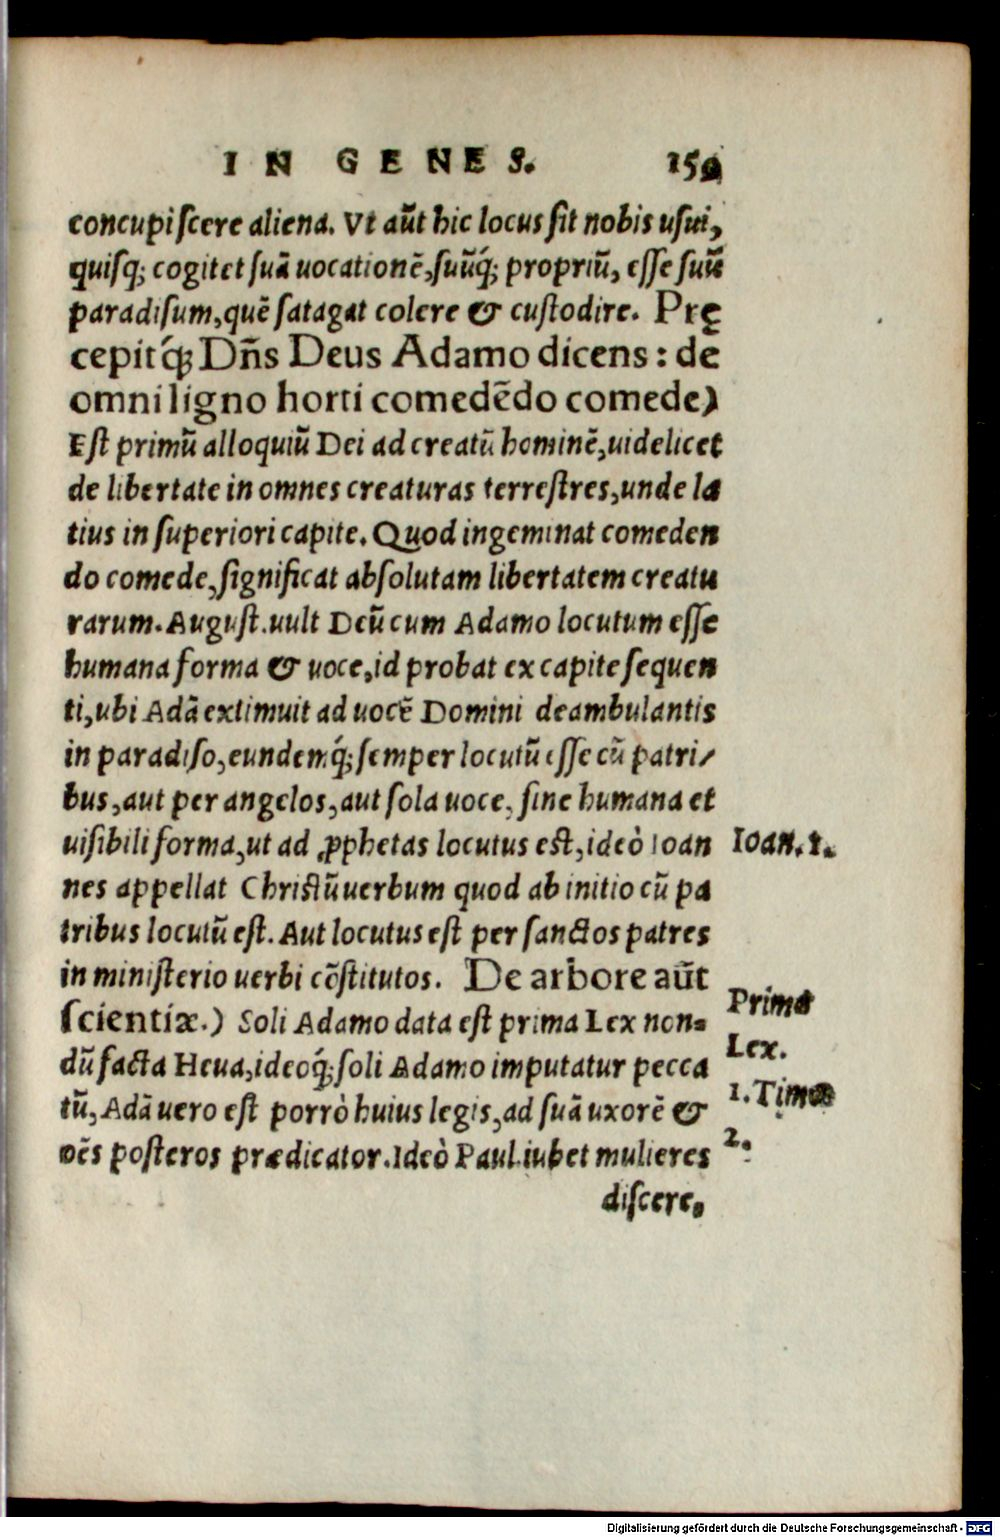 IN GENES.
concupiſcere aliena. Vt aūt hic locus ſit nobis uſui,
quiſq; cogitet ſuā uocationē, ſuūq́; propriū, eſſe ſuū
paradiſum, quē ſatagat colere & cuſtodire. Prę
cepitq́; Dn̄s Deus Adamo dicens: de
omni ligno horti comedēdo comede)
Eſt primū alloquiū Dei ad creatū hominē, uidelicet
de libertate in omnes creaturas terreſtres, unde la
tius in ſuperiori capite. Quod ingeminat comeden
do comede, ſignificat abſolutam libertatem creatu
rarum. Auguſt. uult Deū cum Adamo locutum eſſe
humana forma & uoce, id probat ex capite ſequen
ti, ubi Adā extimuit ad uocē Domini deambulantis
in paradiſo, eundemq́; ſemper locutū eſſe cū patri/
bus, aut per angelos, aut ſola uoce, ſine humana et
uiſibili forma, ut ad ꝓphetas locutus eſt, ideò Ioan
Ioan. 1.
nes appellat Chriſtū uerbum quod ab initio cū pa
tribus locutū eſt. Aut locutus eſt per ſanctos patres
in miniſterio uerbi cōſtitutos. De arbore aūt
ſcientiæ.) Soli Adamo data eſt prima Lex non-
Prima
dū facta Heua, ideoq́; ſoli Adamo imputatur pecca
Lex.
tū, Adā uero eſt porrò huius legis, ad ſuā uxorē &
1. Timo
oēs poſteros prædicator. Ideò Paul. iubet mulieres
2.
diſcere,
Digitalisierung gefördert durch die Deutsche Forschungsgemeinschaft - DFG